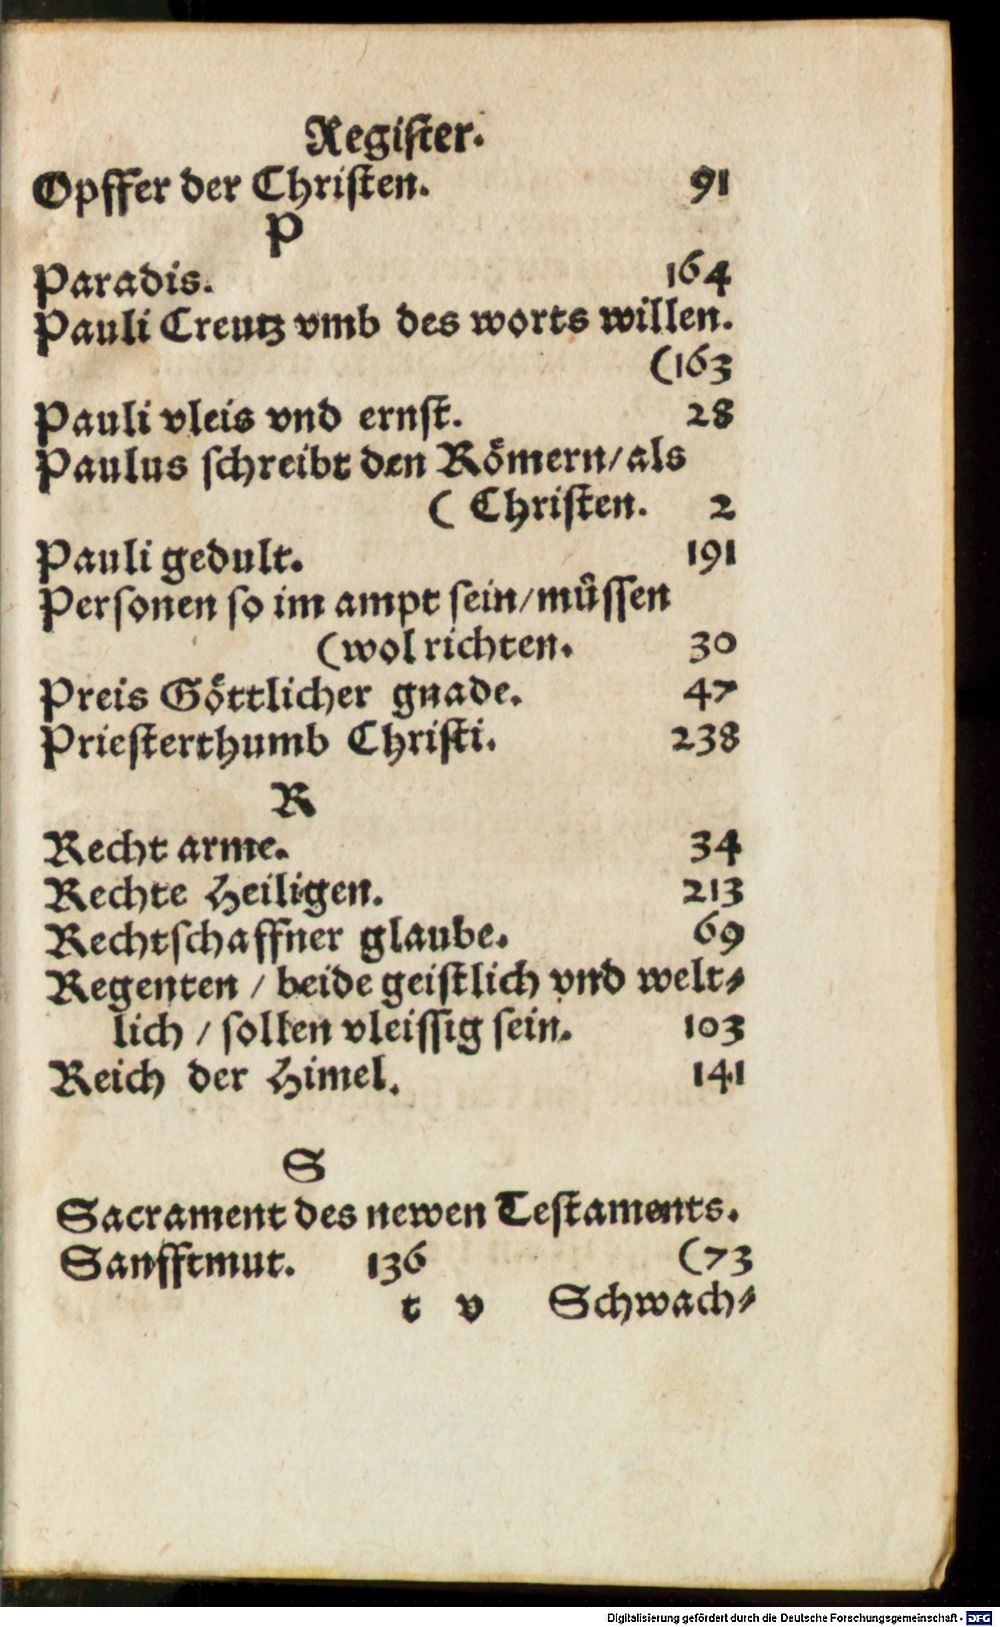 Regiſter.
Opffer der Chriſten. 91
P
Paradis. 164
Pauli Creutz vmb des worts willen.
(163
Pauli vleis vnd ernſt. 28
Paulus ſchreibt den Roͤmern/als
( Chriſten. 2
Pauli gedult. 191
Perſonen ſo im ampt ſein/muͤſſen
(wol richten. 30
Preis Goͤttlicher gnade. 47
Prieſterthumb Chriſti. 238
R
Recht arme. 34
Rechte Heiligen. 213
Rechtſchaffner glaube. 69
Regenten / beide geiſtlich vnd welt⸗
lich / ſollen vleiſſig ſein. 103
Reich der Himel. 141
S
Sacrament des newen Teſtaments.
Sanfftmut. 136 (73
t v Schwach⸗
Digitalisierung gefördert durch die Deutsche Forschungsgemeinschaft - DFG